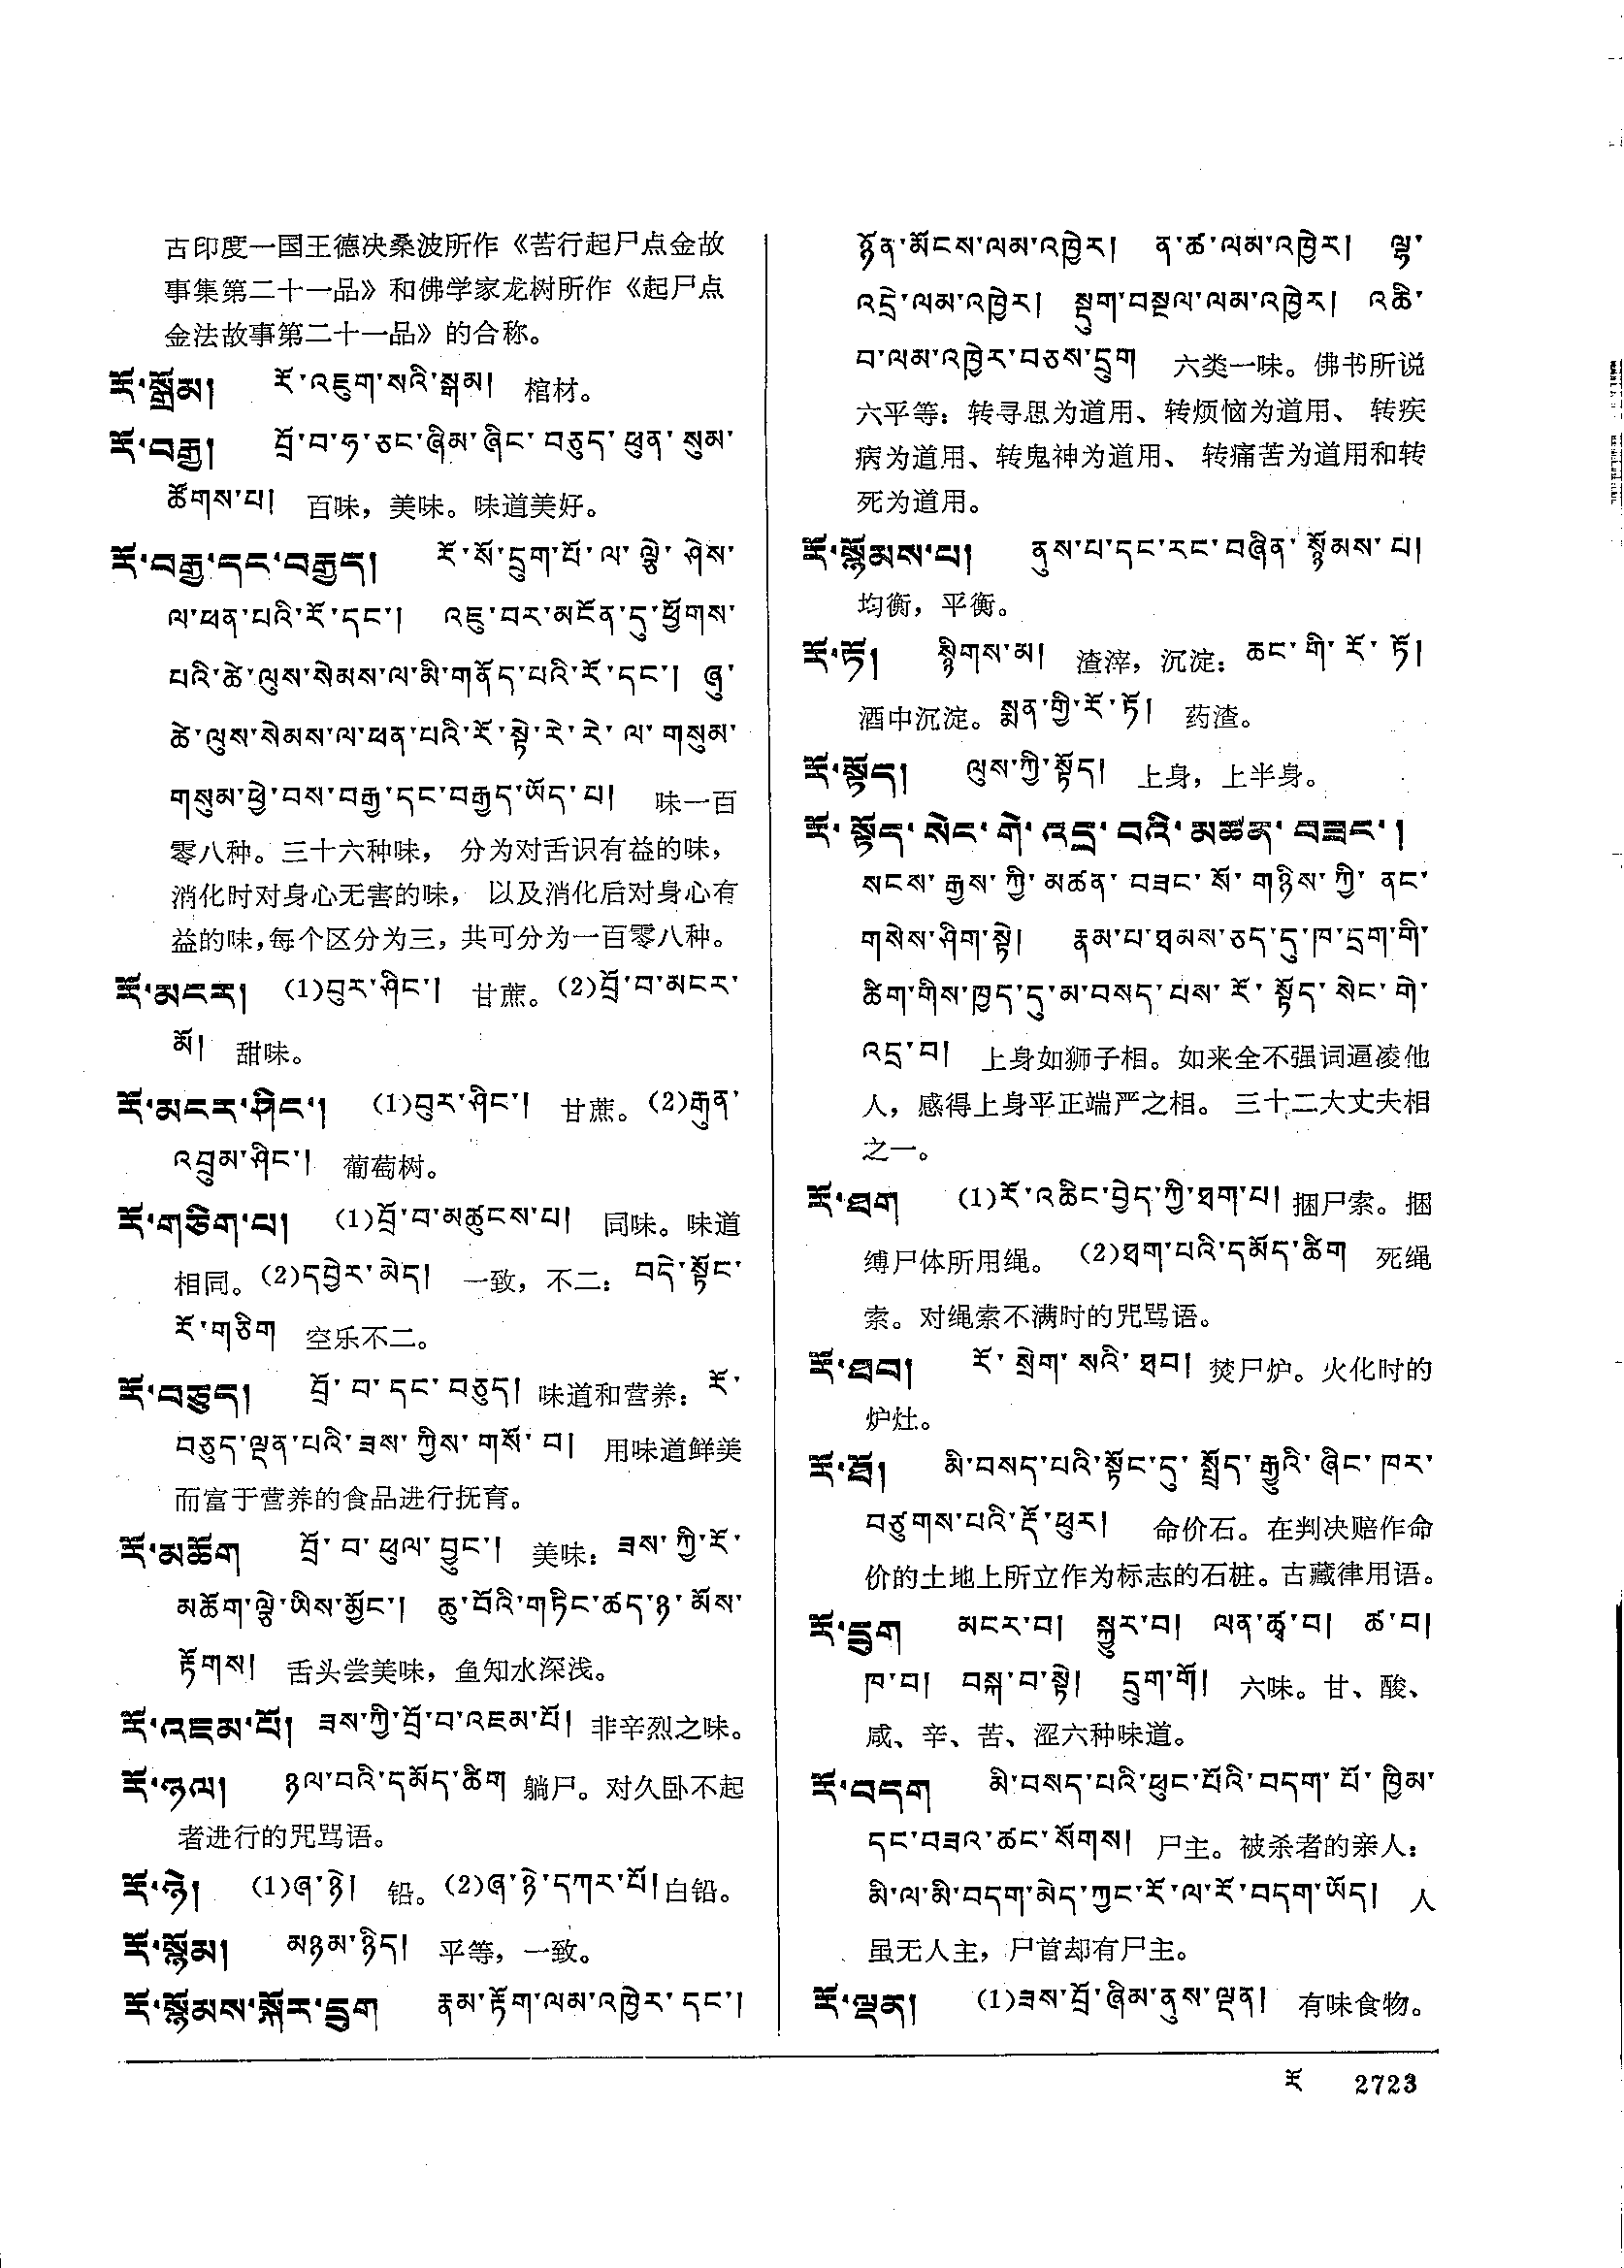 古印度一国王德决桑波所作《苦行起尸点金故
事集第二十一品》和佛学家龙树所作《起尸点
金法故事第二十一品》的合称。
རོ་སྒྲོམ། རོ་འཇུག་སའི་སྒམ། 棺材。
རོ་བརྒྱ། བྲོ་བ་ཧ་ཅང་ཞིམ་ཞིང་བཅུད་ཕུན་སུམ་
ཚོགས་པ། 百味，美味。味道美好。
རོ་བརྒྱ་དང་བརྒྱད། རོ་སོ་དྲུག་པོ་ལ་ལྕེ་ཤེས་
ལ་ཕན་པའི་རོ་དང་། འཇུ་བར་མངོན་དུ་ཕྱོགས་
པའི་ཚེ་ལུས་སེམས་ལ་མི་གནོད་པའི་རོ་དང་། ཞུ་
ཚེ་ལུས་སེམས་ལ་ཕན་པའི་རོ་སྟེ་རེ་རེ་ལ་གསུམ་
གསུམ་ཕྱེ་བས་བརྒྱ་དང་བརྒྱད་ཡོད་པ། 味一百
零八种。三十六种味， 分为对舌识有益的味，
消化时对身心无害的味， 以及消化后对身心有
益的味，每个区分为三，共可分为一百零八种。
རོ་མངར། (1)བུར་ཤིང་། 甘蔗。(2)བྲོ་བ་མངར་
མོ། 甜味。
རོ་མངར་ཤིང་། (1)བུར་ཤིང་། 甘蔗。(2)རྒུན་
འབྲུམ་ཤིང་། 葡萄树。
རོ་གཅིག་པ། (1)བྲོ་བ་མཚུངས་པ། 同味。味道
相同。(2)དབྱེར་མེད། 一致，不二：བདེ་སྟོང་
རོ་གཅིག 空乐不二。
རོ་བཅུད། བྲོ་བ་དང་བཅུད། 味道和营养：རོ་
བཅུད་ལྡན་པའི་ཟས་ཀྱིས་གསོ་བ། 用味道鲜美
而富于营养的食品进行抚育。
རོ་མཆོག བྲོ་བ་ཕུལ་བྱུང་། 美味：ཟས་ཀྱི་རོ་
མཆོག་ལྕེ་ཡིས་མྱོང་། ཆུ་བོའི་གཏིང་ཚད་ཉ་མོས་
རྟོགས། 舌头尝美味，鱼知水深浅。
རོ་འཇམ་པོ། ཟས་ཀྱི་བྲོ་བ་འཇམ་པོ། 非辛烈之味。
རོ་ཉལ། ཉལ་བའི་དམོད་ཚིག 躺尸。对久卧不起
者进行的咒骂语。
རོ་ཉེ། (1)ཞ་ཉེ། 铅。(2)ཞ་ཉེ་དཀར་པོ། 白铅。
རོ་སྙོམ། མཉམ་ཉིད། 平等，一致。
རོ་སྙོམས་སྐོར་དྲུག རྣམ་རྟོག་ལམ་འཁྱེར་དང་།
ཉོན་མོངས་ལམ་འཁྱེར། ན་ཚ་ལམ་འཁྱེར། ལྷ་
འདྲེ་ལམ་འཁྱེར། སྡུག་བསྔལ་ལམ་འཁྱེར། འཆི་
བ་ལམ་འཁྱེར་བཅས་དྲུག 六类一味。佛书所说
六平等：转寻思为道用、转烦恼为道用、 转疾
病为道用、转鬼神为道用、 转痛苦为道用和转
死为道用。
རོ་སྙོམས་པ། ནུས་པ་དང་རང་བཞིན་སྙོམས་པ།
均衡，平衡。
རོ་ཏོ། སྙིགས་མ། 渣滓，沉淀：ཆང་གི་རོ་ཏོ།
酒中沉淀。སྨན་གྱི་རོ་ཏོ། 药渣。
རོ་སྟོད། ལུས་ཀྱི་སྟོད། 上身，上半身。
རོ་སྟོད་སེང་གེ་འདྲ་བའི་མཚན་བཟང་།
སངས་རྒྱས་ཀྱི་མཚན་བཟང་སོ་གཉིས་ཀྱི་ནང་
གསེས་ཤིག་སྟེ། རྣམ་པ་ཐམས་ཅད་དུ་ཁ་དྲག་གི་
ཚིག་གིས་ཁྱད་དུ་མ་བསད་པས་རོ་སྟོད་སེང་གེ་
འདྲ་བ། 上身如狮子相。如来全不强词逼凌他
人，感得上身平正端严之相。 三十二大丈夫相
之一。
རོ་ཐག (1)རོ་འཆིང་བྱེད་ཀྱི་ཐག་པ། 捆尸索。捆
缚尸体所用绳。 (2)ཐག་པའི་དམོད་ཚིག 死绳
索。对绳索不满时的咒骂语。
རོ་ཐབ། རོ་སྲེག་སའི་ཐབ། 焚尸炉。火化时的
炉灶。
རོ་ཐོ། མི་བསད་པའི་སྟོང་དུ་སྤྲོད་རྒྱུའི་ཞིང་ཁར་
བཙུགས་པའི་རྡོ་ཕུར། 命价石。在判决赔作命
价的土地上所立作为标志的石桩。古藏律用语。
རོ་དྲུག མངར་བ། སྐྱུར་བ། ལན་ཚྭ་བ། ཚ་བ།
ཁ་བ། བསྐ་བ་སྟེ། དྲུག་གོ། 六味。甘、酸、
咸、辛、苦、涩六种味道。
རོ་བདག མི་བསད་པའི་ཕུང་པོའི་བདག་པོ་ཁྱིམ་
དང་བཟའ་ཚང་སོགས། 尸主。被杀者的亲人：
མི་ལ་མི་བདག་མེད་ཀྱང་རོ་ལ་རོ་བདག་ཡོད། 人
虽无人主，尸首却有尸主。
རོ་ལྡན། (1)ཟས་བྲོ་ཞིམ་ནུས་ལྡན། 有味食物。
རོ 2723